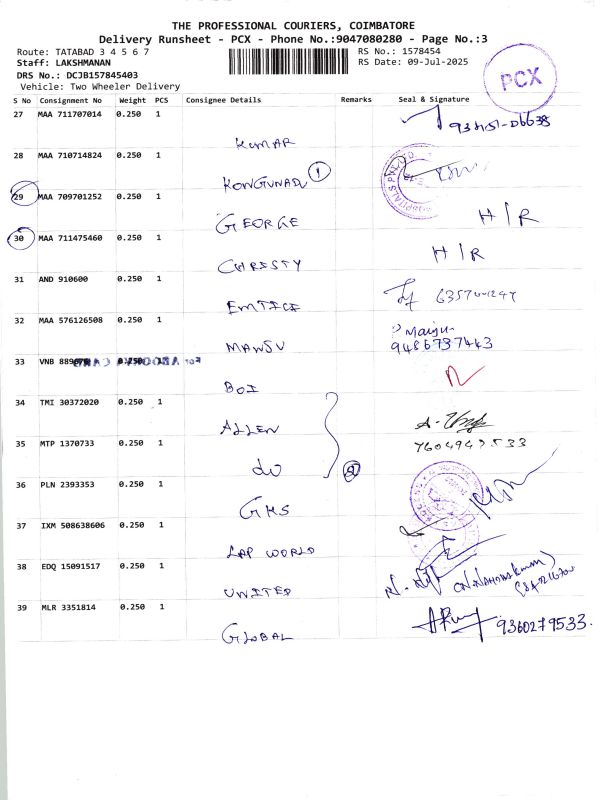 THE PROFESSIONAL COURIERS, COIMBATORE
Delivery Runsheet - PCX - Phone No.:9047080280 - Page No.:3
Route: TATABAD 3 4 5 6 7 RS No.: 1578454
Staff: LAKSHMANAN RS Date: 09-Jul-2025
DRS No.: DCJB157845403
Vehicle: Two Wheeler Delivery
PCX
S No Consignment No Weight PCS Consignee Details Remarks Seal & Signature
27 MAA 711707014 0.250 1
KUMAR
28 MAA 710714824 0.250 1
KONGUNADU 1
29 MAA 709701252 0.250 1
GEORGE H/R
30 MAA 711475460 0.250 1
CHRISTY H/R
31 AND 910600 0.250 1
EMTICI
32 MAA 576126508 0.250 1
MANSU 9486737443
33 VNB 0.250 1
BOI
34 TMI 30372020 0.250 1
ALLEN
35 MTP 1370733 0.250 1 7604947533
do 2
36 PLN 2393353 0.250 1
GMS
37 IXM 508638606 0.250 1
LAP WORLD
38 EDQ 15091517 0.250 1
UNITED
39 MLR 3351814 0.250 1
GLOBAL 9360279533.